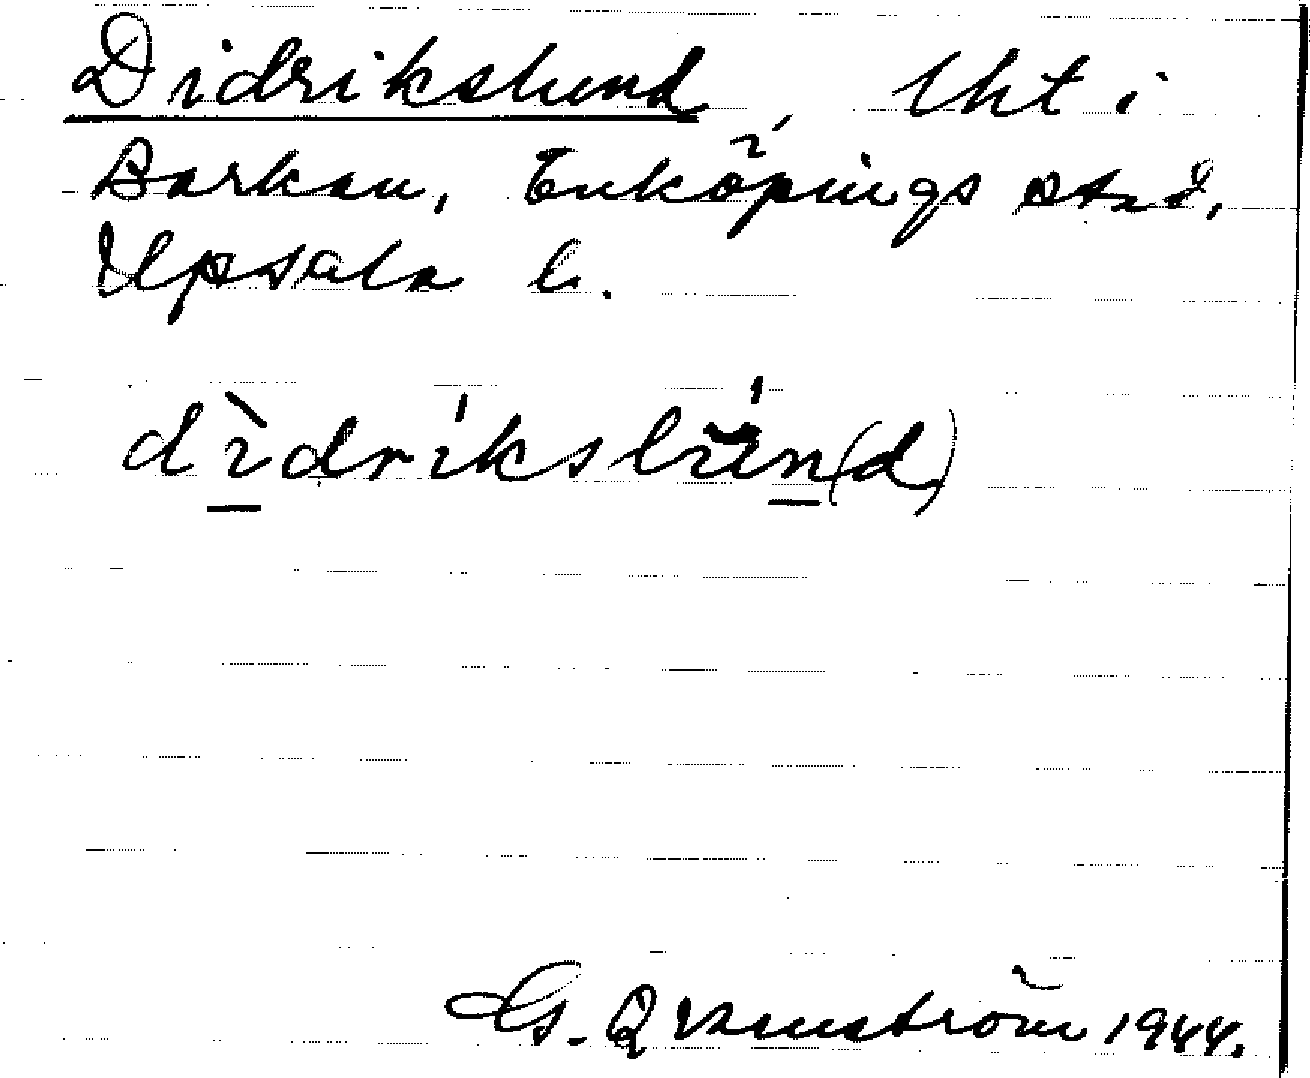 Didrikslund, lht i
Barkau, Enköpings stad,
Upsala l.
dìdrikslun(d)
G. Qvarnström 1944.